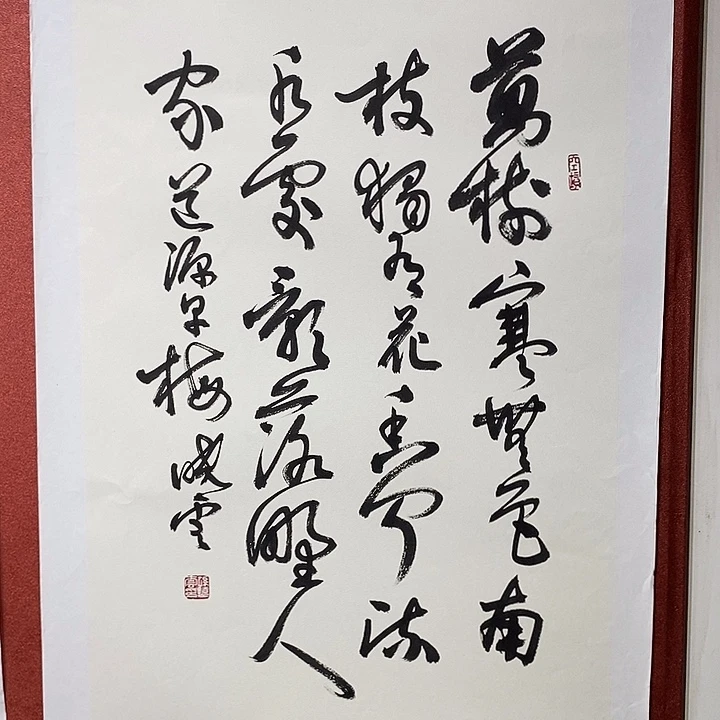 萬樹寒無色南
枝獨有花香聞流
水處影落野人
家 道源早梅 曉雲